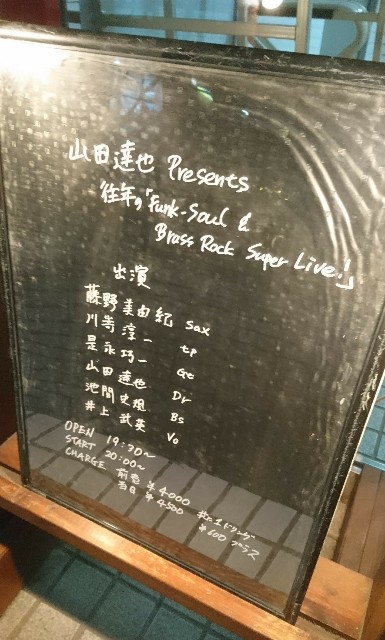 山田達也 Presents
往年の「Funk-Soul &
Brass Rock Super Live!」
出演
藤野美由紀 Sax
川嵜淳一 tp
是永巧一 Gt
山田達也 Dr
池間史規 Bs
井上武英 Vo
OPEN 19:30〜
START 20:00〜
CHARGE 前売 ¥4000
当日 ¥4500
1ドリンク
¥600 プラス